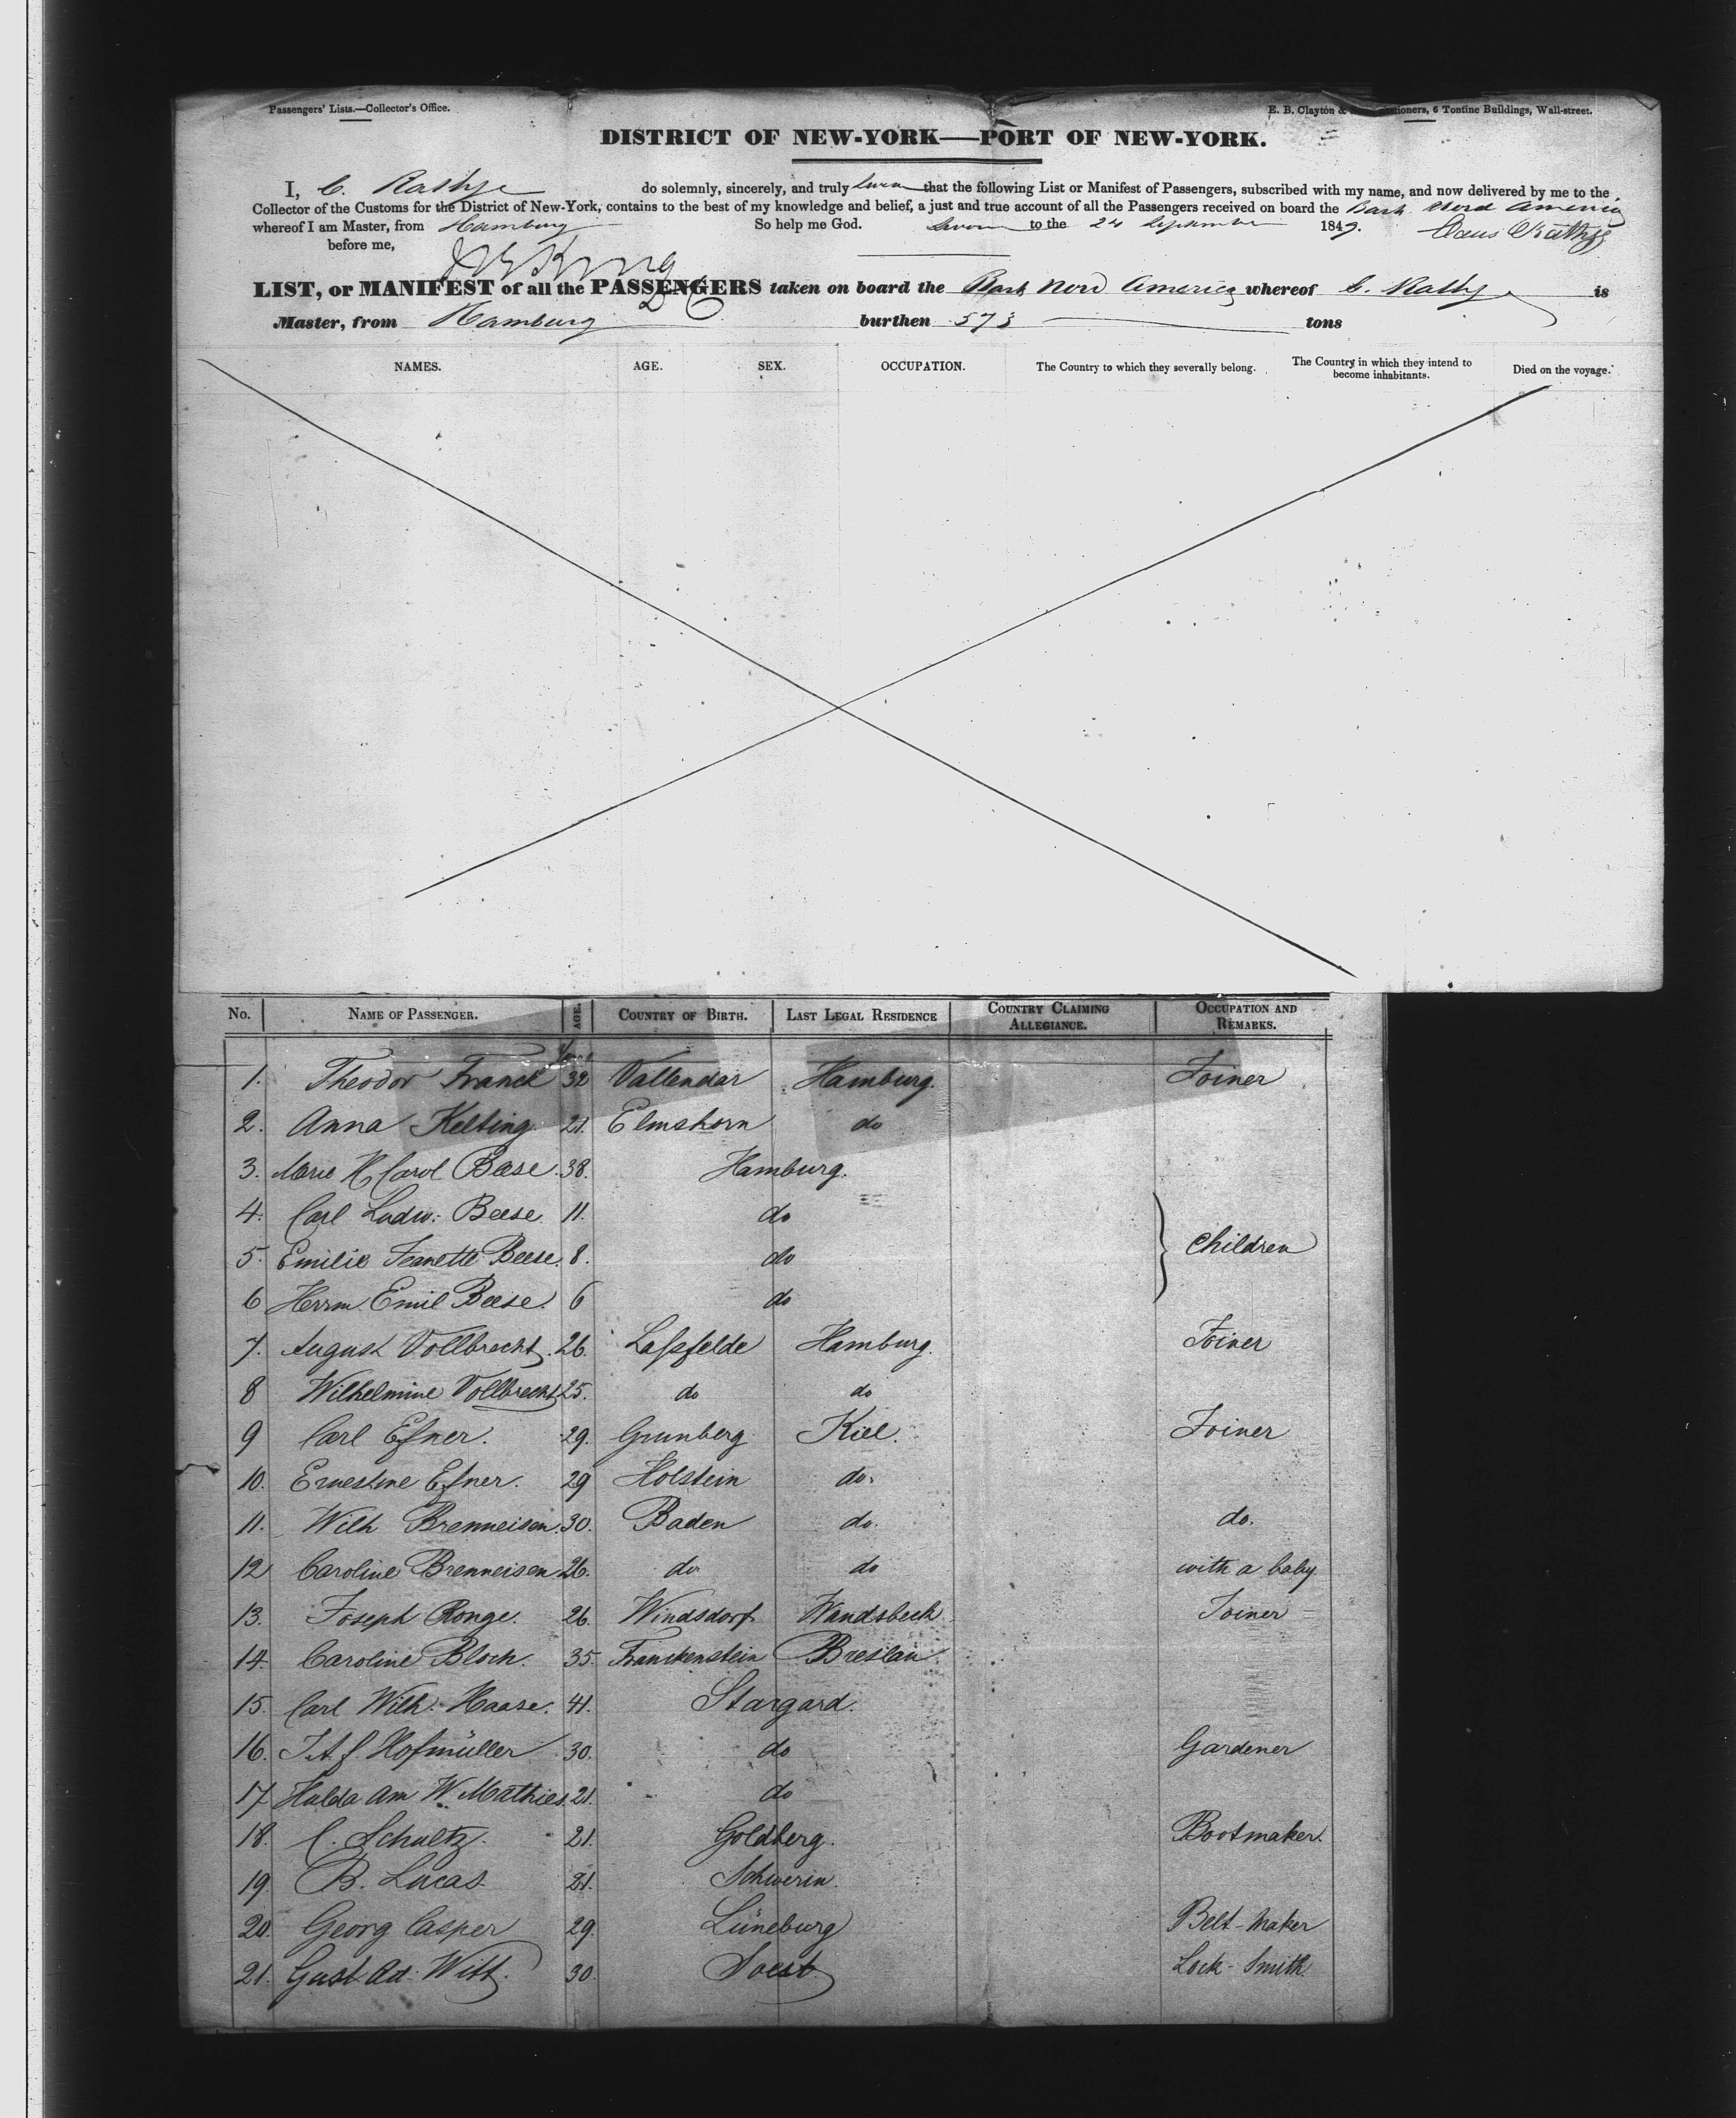 Passengers' Lists.—Collector's Office. E. B. Clayton & Stationers, 6 Tontine Buildings, Wall-street.
DISTRICT OF NEW-YORK—PORT OF NEW-YORK.
I, C. Rathje do solemnly, sincerely, and truly swear that the following List or Manifest of Passengers, subscribed with my name, and now delivered by me to the
Collector of the Customs for the District of New-York, contains to the best of my knowledge and belief, a just and true account of all the Passengers received on board the Bark Nord America
whereof I am Master, from Hamburg So help me God. Sworn to the 24 September 1849. Claus Rathje
before me,
King
LIST, or MANIFEST of all the PASSENGERS taken on board the Bark Nord America whereof C. Rathje is
Master, from Hamburg burthen 573 tons
NAMES. AGE. SEX. OCCUPATION. The Country to which they severally belong. The Country in which they intend to become inhabitants. Died on the voyage.
No. NAME OF PASSENGER. AGE. COUNTRY OF BIRTH. LAST LEGAL RESIDENCE COUNTRY CLAIMING ALLEGIANCE. OCCUPATION AND REMARKS.
Years
1. Theodor Franck 32 Vallendar Hamburg. Joiner
2. Anna Kelting 21. Elmshorn do
3. Marie H Carol Beese. 38. Hamburg.
4. Carl Ludw: Beese. 11. do
5. Emilie Jeanette Beese. 8. do Children
6 Herrm. Emil Beese. 6 do
7. August Vollbrecht. 26. Laſsfelde Hamburg. Joiner
8 Wilhelmine Vollbrecht 25. do do
9 Carl Eſner. 29. Grunberg Kiel. Joiner
10. Ernestine Eſner. 29 Holstein do.
11. Wilh Brenneisen. 30. Baden do. do.
12 Caroline Brenneisen 26. do do with a baby
13. Joseph Ronge. 26 Windsdorf Wandsbeck Joiner
14. Caroline Bloch. 35. Franckenstein Breslau
15. Carl Wilh: Haase. 41. Stargard.
16. J. A. f. Hofmüller 30. do Gardener
17 Hulda Am W. Mathies. 21. do
18. C. Schultz. 21. Goldberg. Bootmaker.
19. B. Lucas 21. Schwerin.
20. Georg Casper 29. Lüneburg Belt-Maker
21. Gust. Ad. Witt. 30. Soest Lock-Smith